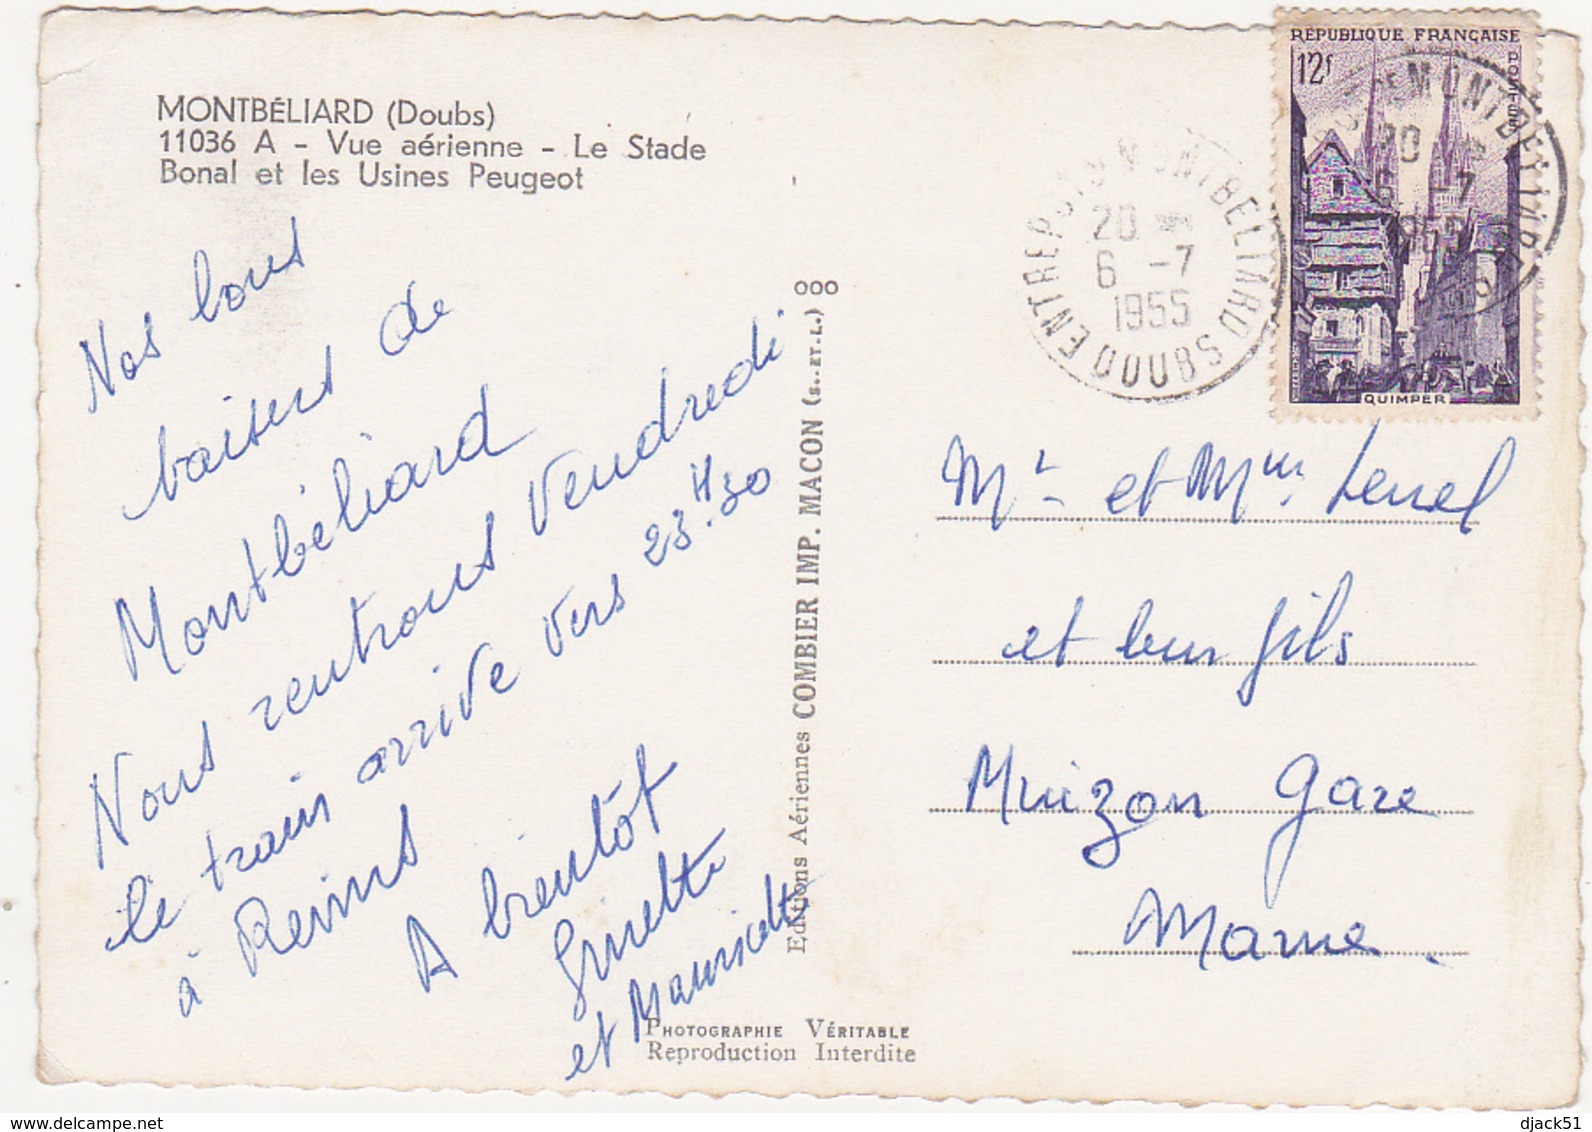 MONTBÉLIARD (Doubs)
11036 A - Vue aérienne - Le Stade
Bonal et les Usines Peugeot
Nos bons
baisers de
Montbéliard
Nous rentrons Vendredi
le train arrive vers 23H.30
à Reims
A bientôt
Ginette
et Mauricette
PHOTOGRAPHIE VÉRITABLE
Reproduction Interdite
Editions Aériennes COMBIER IMP. MACON (S.-ET-L.) OOO
RÉPUBLIQUE FRANÇAISE
12f
POSTES
QUIMPER
ENTREPOTS MONTBELIARD DOUBS
20
6 -7
1955
Mr et Mme
et leur fils
Muizon Gare
Marne.
djack51